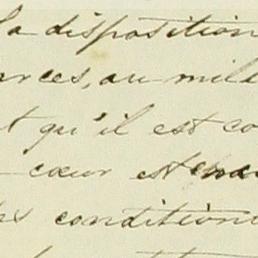 la disposition
rces, au mili
t qu'il est co
cœur est
conditions